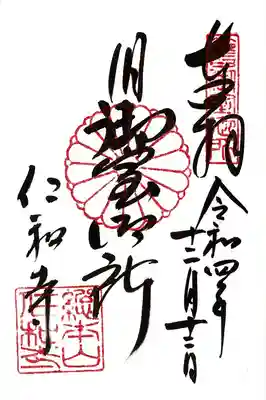 奉拝
令和四年
十二月十二日
旧御室御所
仁和寺